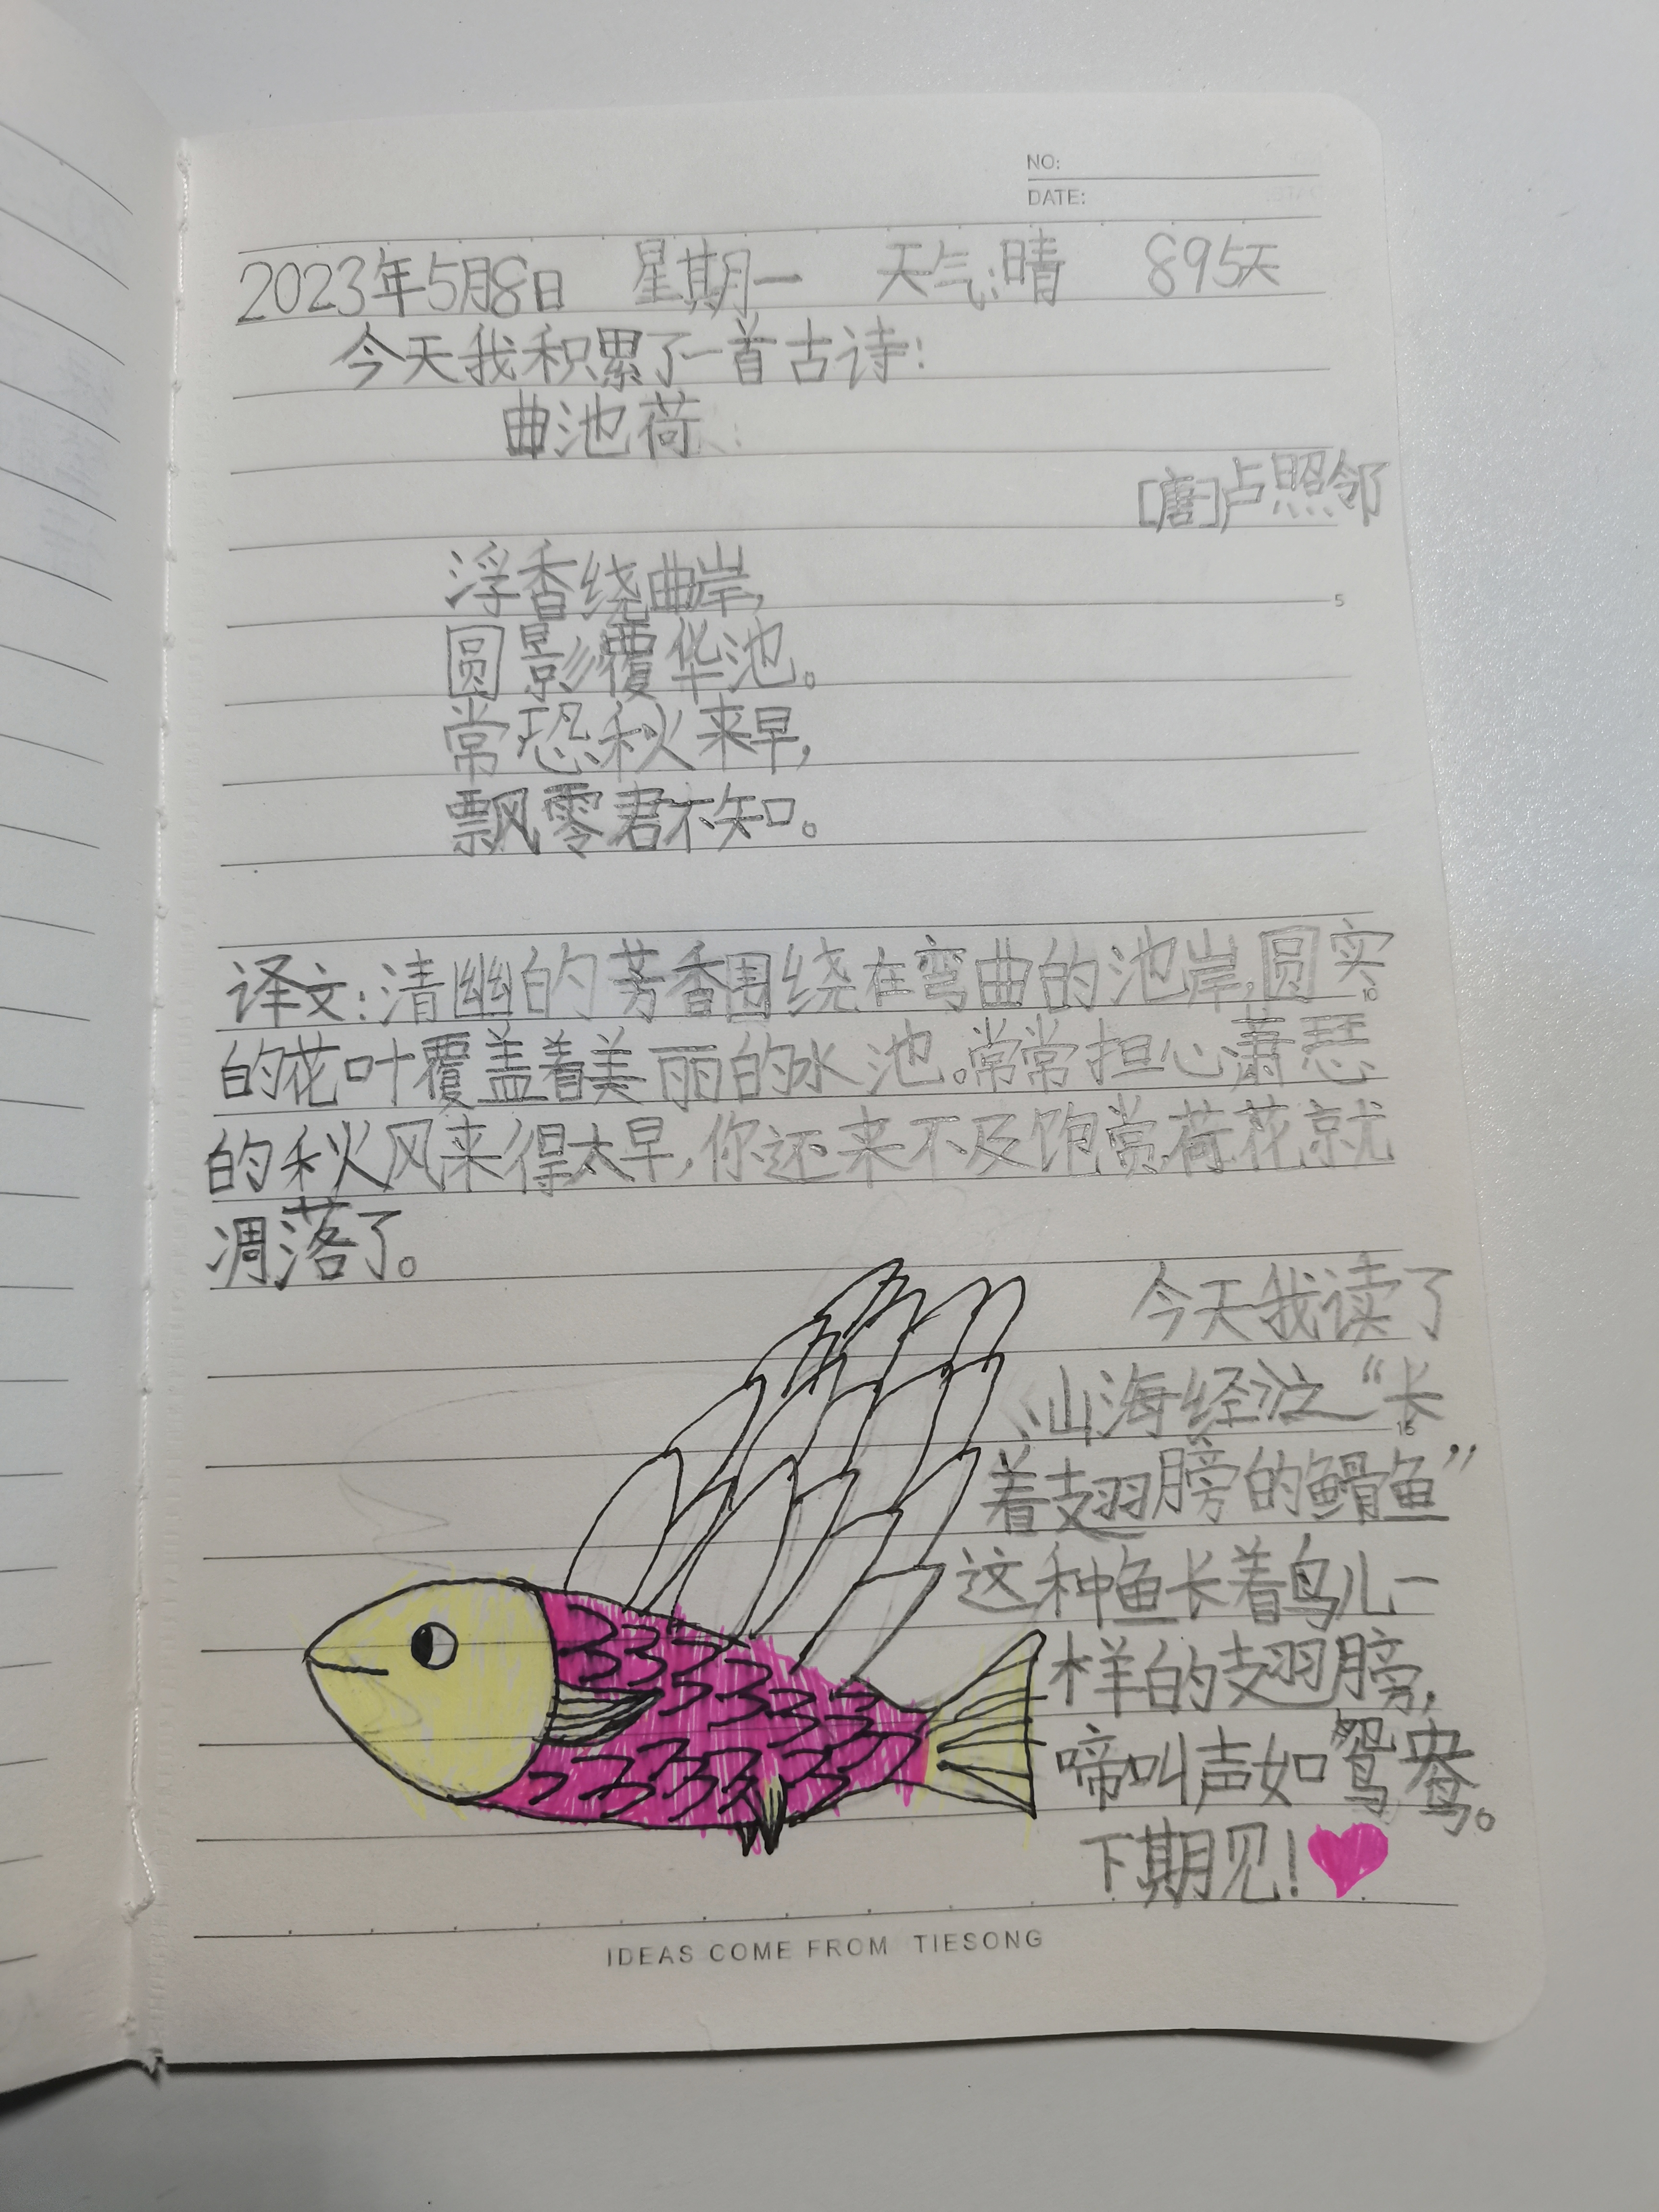 NO:
DATE:
2023年5月8日 星期一 天气:晴 895天
今天我积累了一首古诗:
曲池荷
[唐]卢照邻
浮香绕曲岸,
圆影覆华池。
常恐秋来早,
飘零君不知。
5
译文:清幽的芳香围绕在弯曲的池岸,圆实
10
的花叶覆盖着美丽的水池。常常担心萧瑟
的秋风来得太早,你还来不及饱赏荷花就
凋落了。
今天我读了
《山海经》之“长
15
着翅膀的鳛鱼”
这种鱼长着鸟儿一
样的翅膀,
啼叫声如鸳鸯。
下期见!
IDEAS COME FROM TIESONG